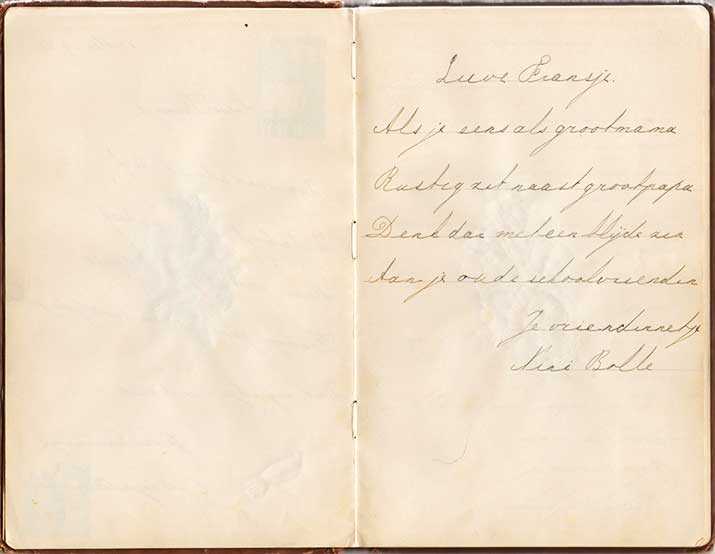 Lieve Fransje.
Als je eens als grootmama
Rustig zit naast grootpapa
Denk dan met een blijde zin
Aan je oude schoolvriendin
Je vriendinnetje
Bolle